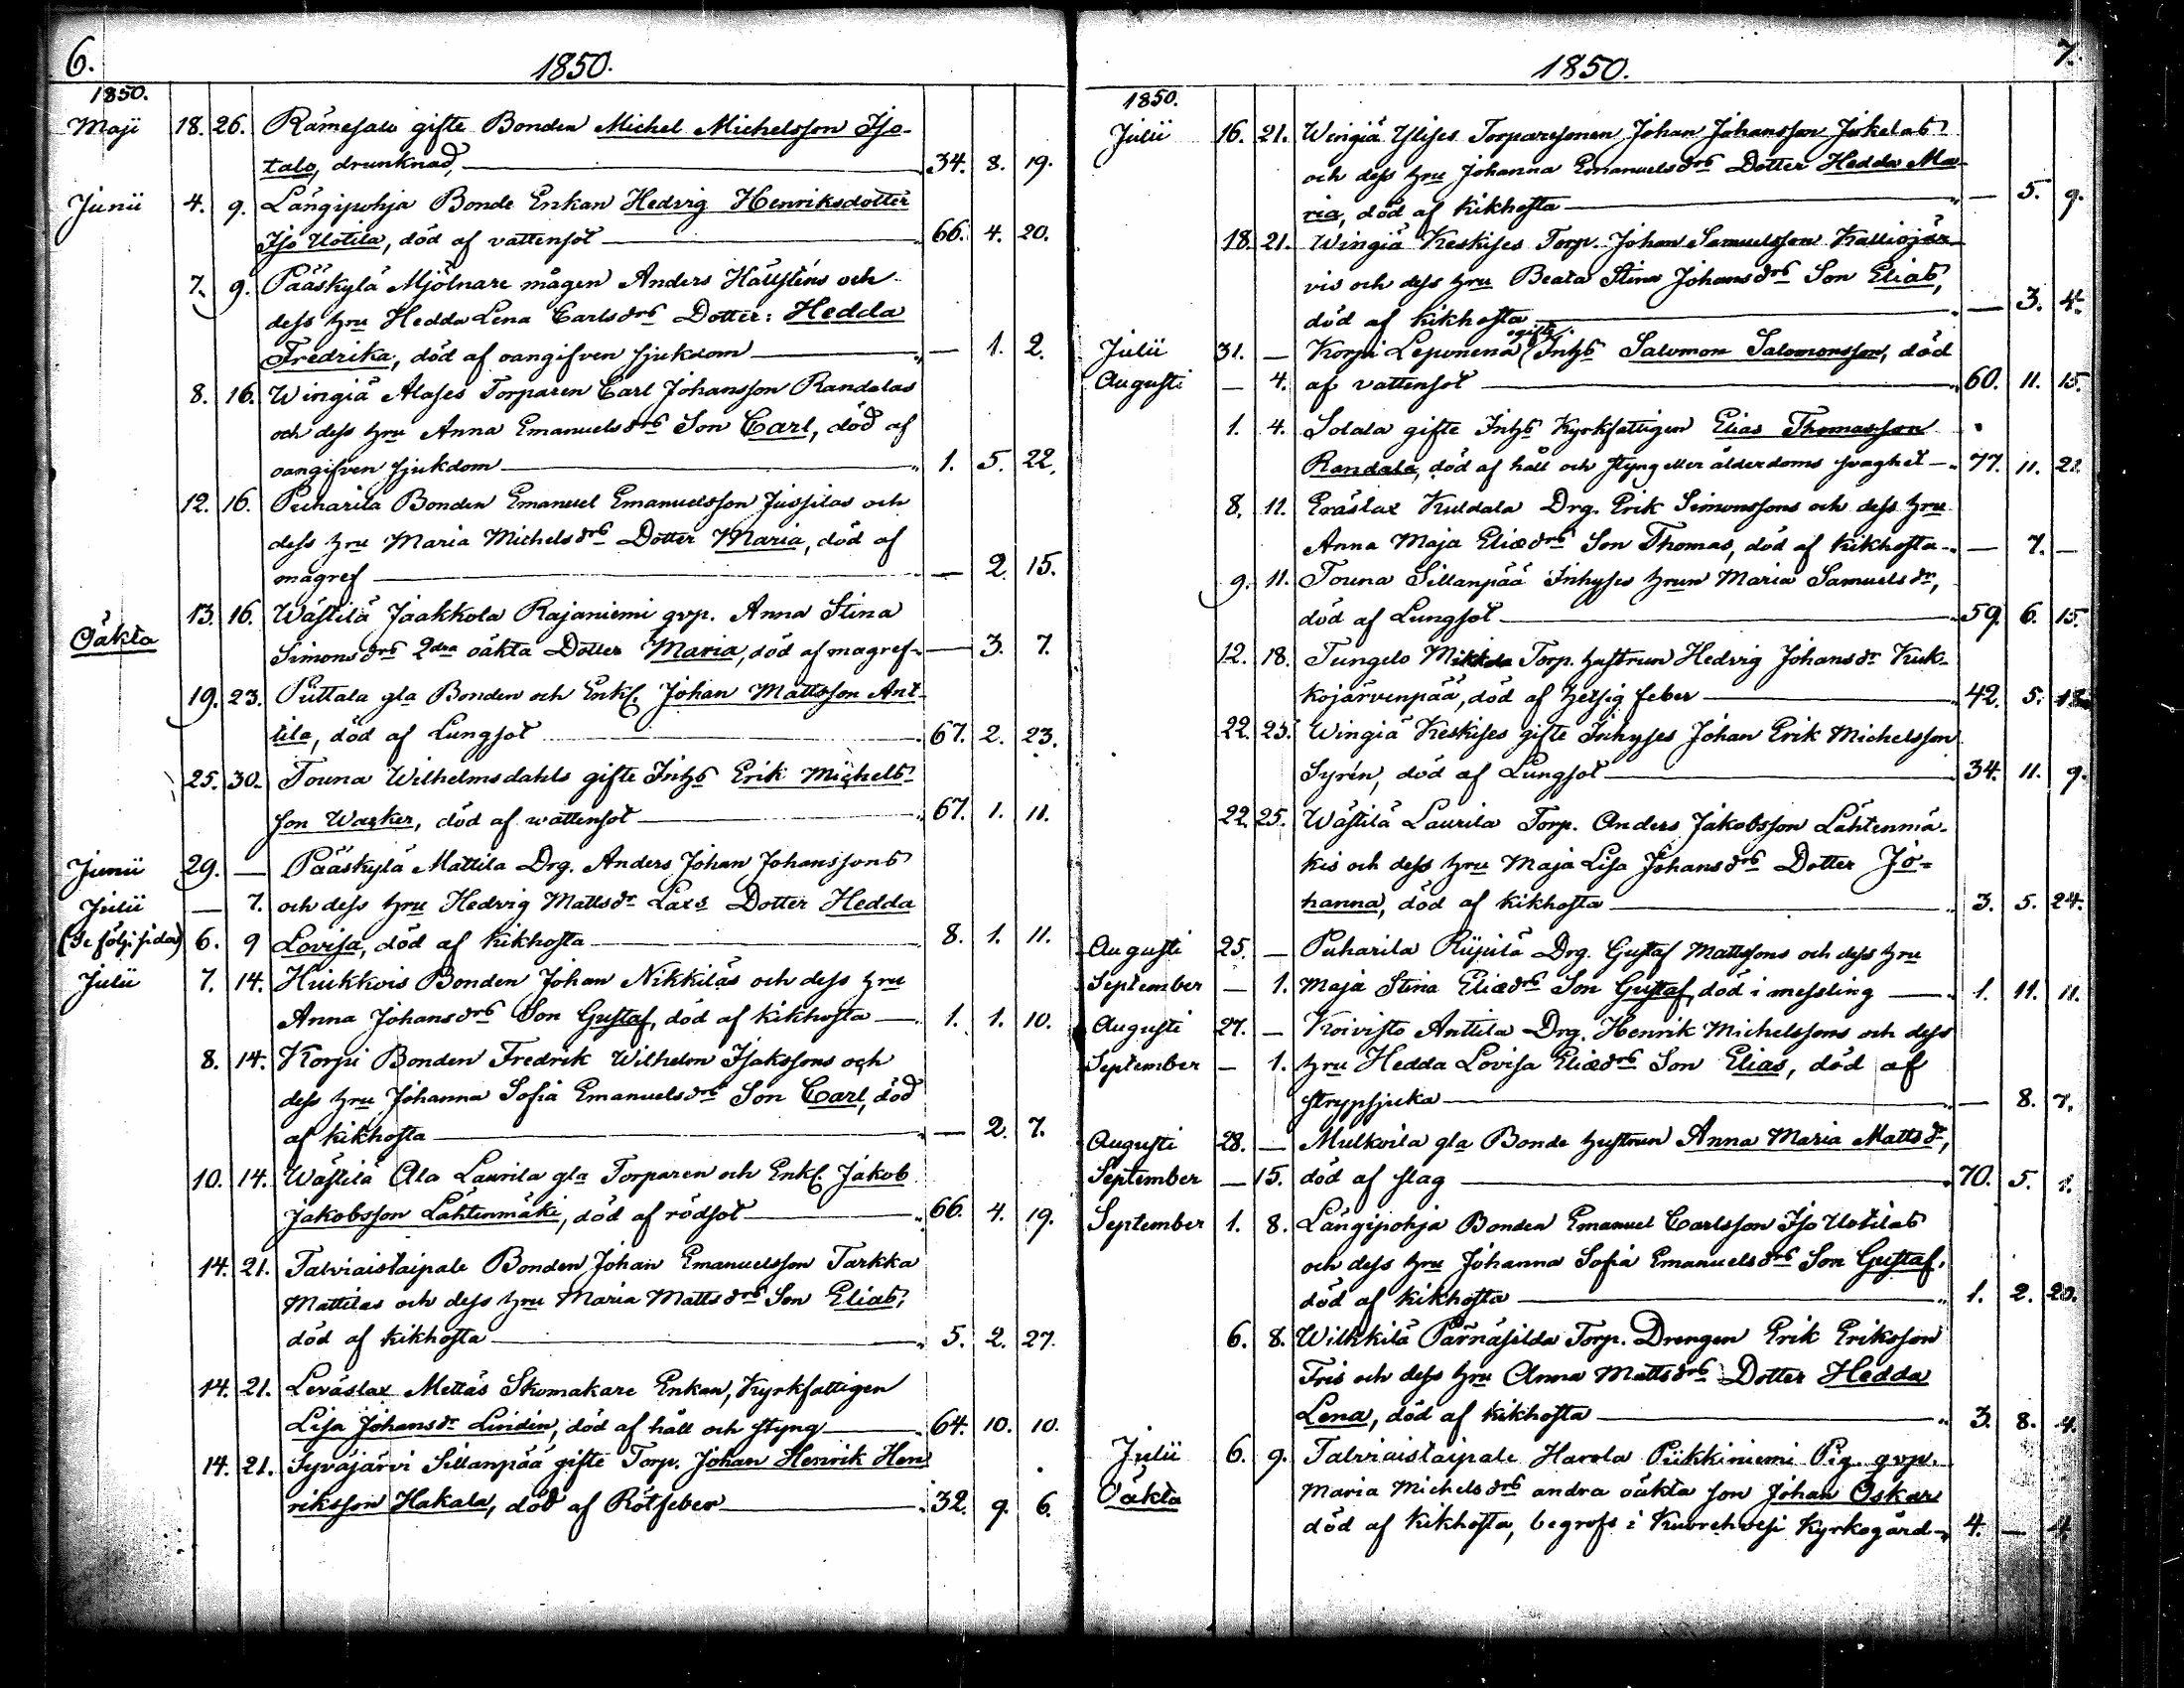 6.
1850.
1850.
Maji 18. 26. Rämesalo gifte Bonden Michel Michelsson Iso-
talo, drunknad, 34. 8. 19.
Junii 4. 9. Längipohja Bonde Enkan Hedvig Henriksdotter
Iso Uotila, död af vattensot 66. 4. 20.
7. 9. Pääskylä Mjölnare mågen Anders Hällsténs och
dess hru Hedda Lena Carlsdrs Dotter: Hedda
Fredrika, död af oangifven sjukdom — 1. 2.
8. 16. Wingiä Alases Torparen Carl Johansson Randalas
och dess hru Anna Emanuelsdrs Son Carl, död af
oangifven sjukdom 1. 5. 22.
12. 16. Puharila Bonden Emanuel Emanuelsson Jussilas och
dess hru Maria Michelsdrs Dotter Maria, död af
magref — 2. 15.
Oäkta 13. 16. Wästilä Jaakkola Rajaniemi qvp. Anna Stina
Simonsdrs 2dra oäkta Dotter Maria, död af magref — 3. 7.
19. 23. Puttala gla Bonden och Enkl. Johan Mattsson Ant-
tila, död af Lungsot 67. 2. 23.
25. 30. Touna Wilhelmsdahls gifte Inhs Erik Michels-
son Wasker, död af wattensot 67. 1. 11.
Junii 29. — Pääskylä Mattila Drg. Anders Johan Johanssons
Julii — 7. och dess hru Hedvig Mattsdr Laxs Dotter Hedda
(Se följ: sida) 6. 9 Lovisa, död af kikhosta 8. 1. 11.
Julii 7. 14. Huikkois Bonden Johan Nikkiläs och dess hru
Anna Johansdrs Son Gustaf, död af kikhosta 1. 1. 10.
8. 14. Korpi Bonden Fredrik Wilhelm Isakssons och
dess hru Johanna Sofia Emanuelsdrs Son Carl, död
af kikhosta — 2. 7.
10. 14. Wästilä Ala Laurila gla Torparen och Enkl. Jakob
Jakobsson Lähtenmäki, död af rödsot 66. 4. 19.
14. 21. Talviaistaipale Bonden Johan Emanuelsson Tarkka
Mattilas och dess hru Maria Mattsdrs Son Elias,
död af kikhosta 5. 2. 27.
14. 21. Leväslax Mettäs Skomakare Enkan, Kyrkfattigen
Lisa Johansdr Lindin, död af håll och styng 64. 10. 10.
14. 21. Syväjärvi Sillanpää gifte Torp. Johan Henrik Hen-
riksson Hakala, död af Rötfeber 32. 9. 6.
7.
1850.
1850.
Julii 16. 21. Wingiä Ylises Torparesonen Johan Johansson Jokelas
och dess hru Johanna Emanuelsdrs Dotter Hedda Ma-
ria, död af kikhosta — 5. 9.
18. 21. Wingiä Keskises Torp. Johan Samuelsson Kalliojär-
vis och dess hru Beata Stina Johansdrs Son Elias,
död af kikhosta — 3. 4.
Julii 31. — Korpi Leponena (ogifte Inhs Salomon Salomonsson, död
Augusti — 4. af vattensot 60. 11. 15.
1. 4. Solala gifte Inhs Kyrkfattigen Elias Thomasson
Randala, död af håll och styng eller ålderdoms svaghet 77. 11. 21.
8. 11. Eräslax Kuldala Drg. Erik Simonssons och dess hru
Anna Maja Eliædrs Son Thomas, död af kikhosta — 7. —
9. 11. Touna Sillanpää Inhyses hrun Maria Samuelsdr,
död af Lungsot 59. 6. 15.
12. 18. Tungelo Mikkola Torp. hustrun Hedvig Johansdr Kuk-
kojärvenpää, död af hetsig feber 42. 5.
22. 25. Wingiä Keskises gifte Inhyses Johan Erik Michelsson
Syrén, död af Lungsot 34. 11. 9.
22. 25. Wästilä Laurila Torp. Anders Jakobsson Lähtenmä-
kis och dess hru Maja Lisa Johansdrs Dotter Jo-
hanna, död af kikhosta 3. 5. 24.
Augusti 25. — Puharila Riipilä Drg. Gustaf Mattssons och dess hru
September — 1. Maja Stina Eliædrs Son Gustaf, död i messling 1. 11. 11.
Augusti 27. — Koivisto Anttila Drg. Henrik Michelssons och dess
September — 1. hru Hedda Lovisa Eliædrs Son Elias, död af
strypsjuka — 8. 7.
Augusti 28. — Mulkoila gla Bonde hustrun Anna Maria Mattsdr,
September — 15. död af slag 70. 5. 1.
September 1. 8. Längipohja Bonden Emanuel Carlsson Iso Uotilas
och dess hru Johanna Sofia Emanuelsdrs Son Gustaf,
död af kikhosta 1. 2. 20.
6. 8. Wilkkilä Pärnäsilda Torp. Drengen Erik Eriksson
Fris och dess hru Anna Mattsdrs Dotter Hedda
Lena, död af kikhosta 3. 8. 4.
Julii 6. 9. Talviaistaipale Harola Pukkiniemi Pig. qvp.
Oäkta Maria Michelsdrs andra oäkta son Johan Oskar
död af kikhosta, begrofs i Kuorehvesi Kyrkogård 4. — 4.